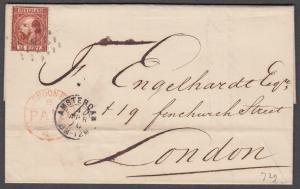 NEDERLAND
F. Engelhardt Esqre
119 fenchurch Street
London
AMSTERDAM
PAID
729